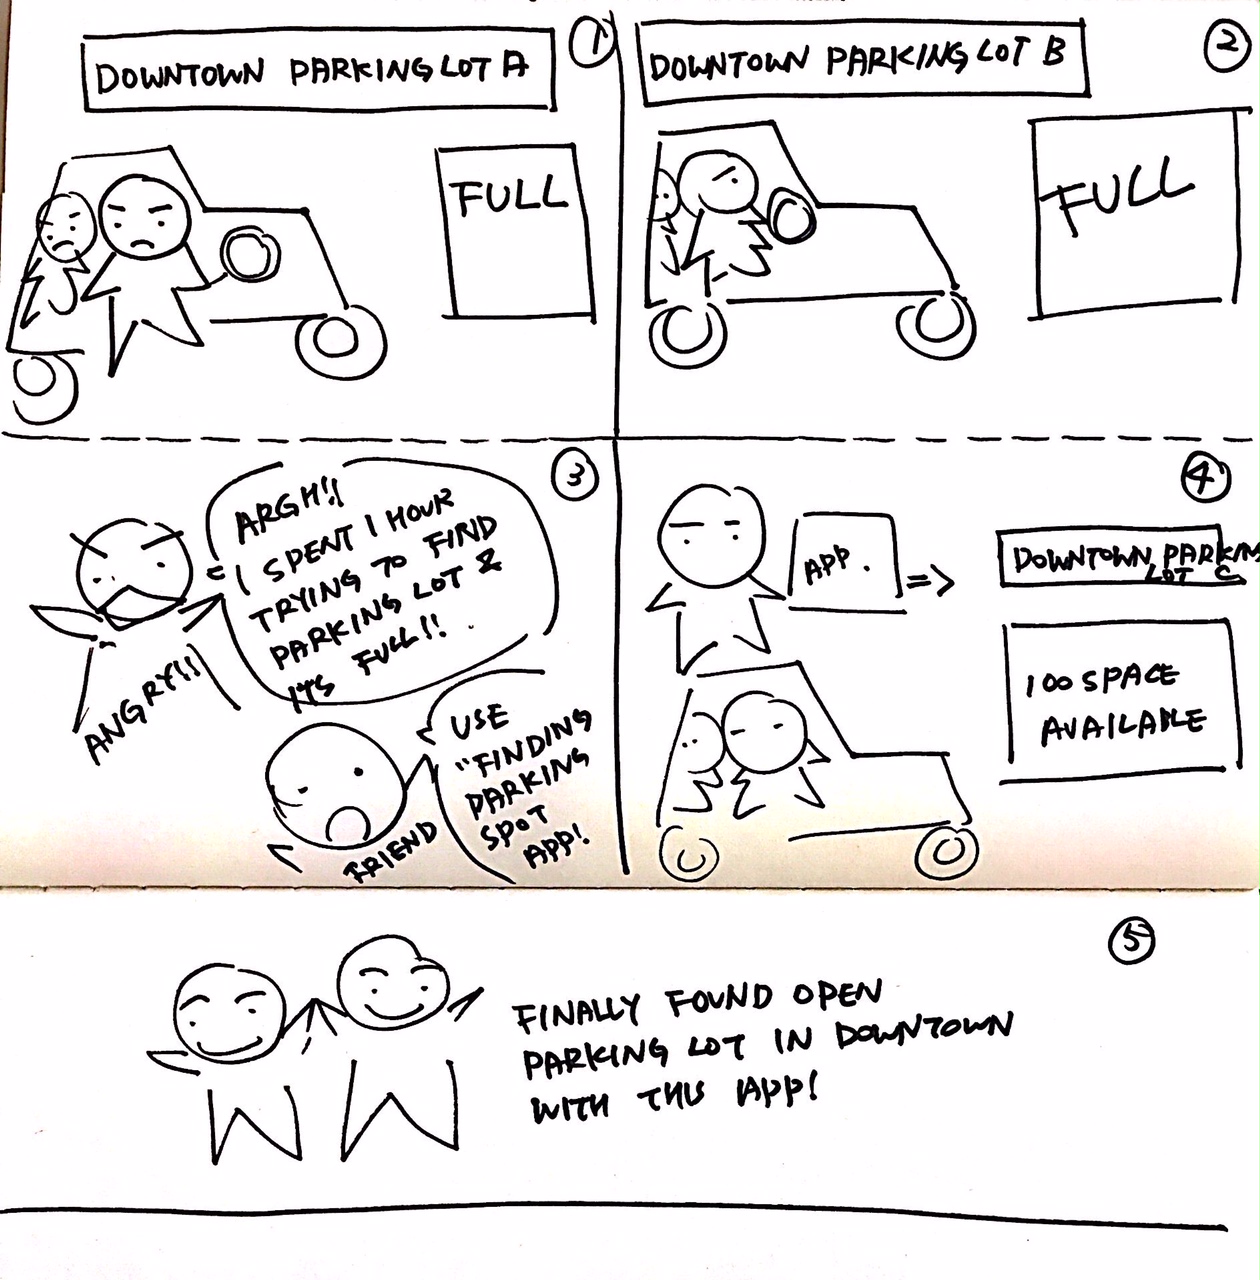 1
DOWNTOWN PARKING LOT A
FULL
2
DOWNTOWN PARKING LOT B
FULL
3
ARGH!!
I SPENT 1 HOUR
TRYING TO FIND
PARKING LOT &
ITS FULL!!
ANGRY!!
USE
"FINDING
PARKING
SPOT
APP!
FRIEND
4
APP.
=>
DOWNTOWN PARKING
LOT C
100 SPACE
AVAILABLE
5
FINALLY FOUND OPEN
PARKING LOT IN DOWNTOWN
WITH THIS APP!